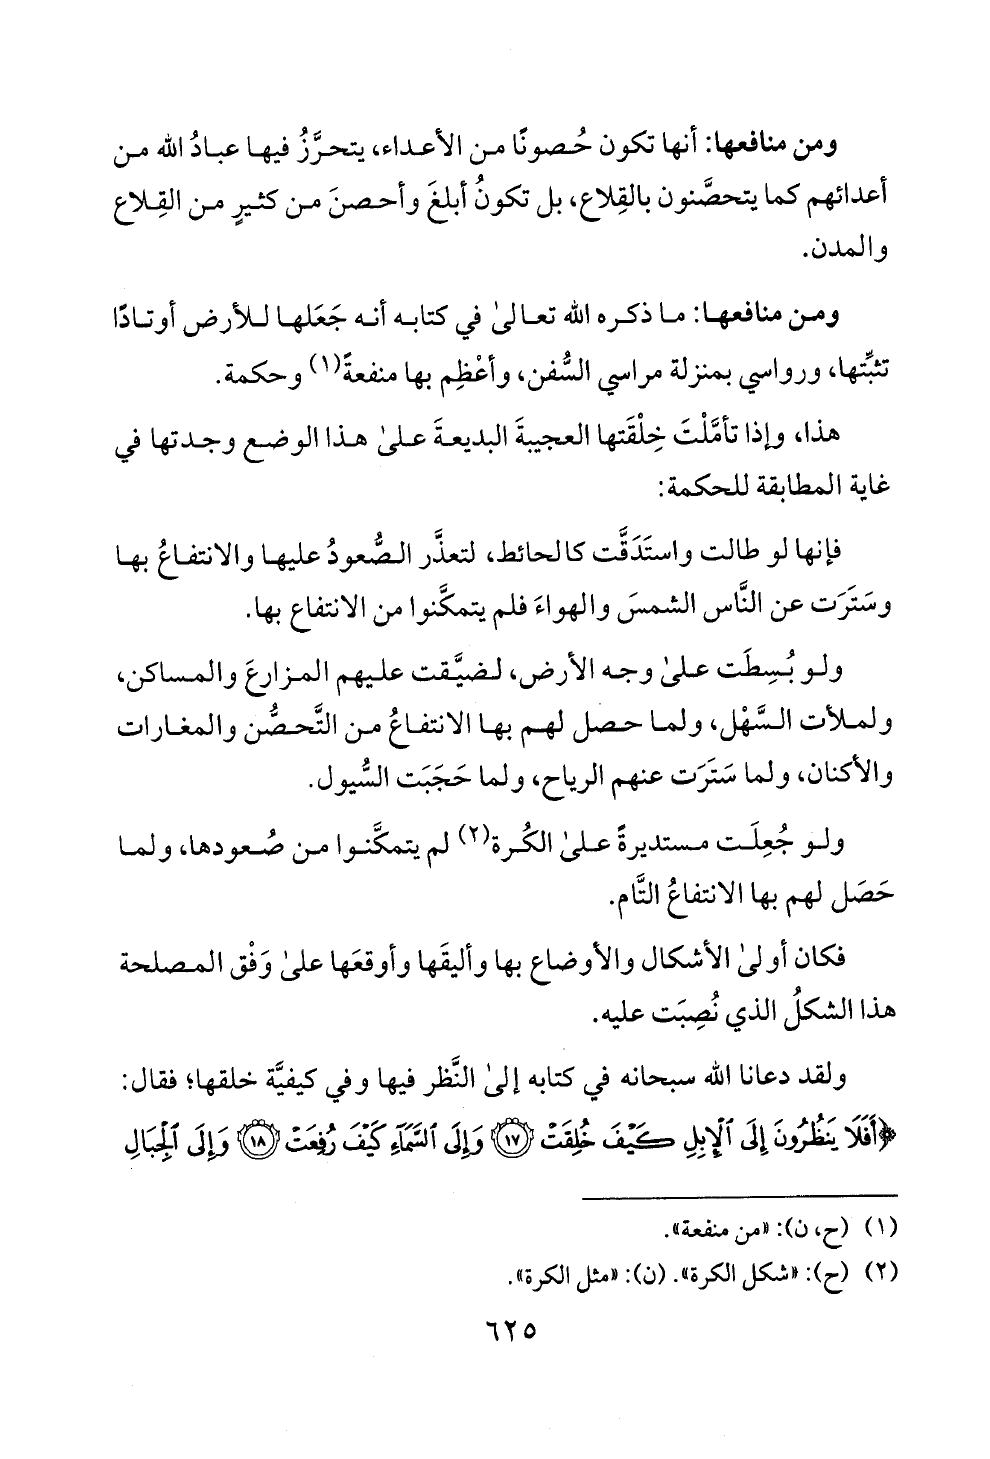 ومن منافعها: أنها تكون حُصونًا من الأعداء، يتحرَّزُ فيها عبادُ الله من
أعدائهم كما يتحصَّنون بالقِلاع، بل تكونُ أبلغَ وأحصنَ من كثيرٍ من القِلاع
والمدن.
ومن منافعها: ما ذكره الله تعالىٰ في كتابه أنه جَعَلها للأرض أوتادًا
تثبِّتها، ورواسي بمنزلة مراسي السُّفن، وأعْظِم بها منفعةً(١) وحكمة.
هذا، وإذا تأمَّلْتَ خِلْقَتها العجيبةَ البديعةَ علىٰ هذا الوضع وجدتها في
غاية المطابقة للحكمة:
فإنها لو طالت واستَدَقَّت كالحائط، لتعذَّر الصُّعودُ عليها والانتفاعُ بها
وسَتَرَت عن النَّاس الشمسَ والهواءَ فلم يتمكَّنوا من الانتفاع بها.
ولو بُسِطَت علىٰ وجه الأرض، لضيَّقت عليهم المزارعَ والمساكن،
ولملأت السَّهْل، ولما حصل لهم بها الانتفاعُ من التَّحصُّن والمغارات
والأكنان، ولما سَتَرَت عنهم الرياح، ولما حَجَبَت السُّيول.
ولو جُعِلَت مستديرةً علىٰ الكُرة(٢) لم يتمكَّنوا من صُعودها، ولما
حَصَل لهم بها الانتفاعُ التَّام.
فكان أولىٰ الأشكال والأوضاع بها وأليقَها وأوقعَها علىٰ وَفْق المصلحة
هذا الشكلُ الذي نُصِبَت عليه.
ولقد دعانا الله سبحانه في كتابه إلىٰ النَّظر فيها وفي كيفيَّة خلقها؛ فقال:
﴿أَفَلَا يَنظُرُونَ إِلَى ٱلْإِبِلِ كَيْفَ خُلِقَتْ ۝١٧ وَإِلَى ٱلسَّمَآءِ كَيْفَ رُفِعَتْ ۝١٨ وَإِلَى ٱلْجِبَالِ
(١) (ح، ن): «من منفعة».
(٢) (ح): «شكل الكرة». (ن): «مثل الكرة».
٦٢٥